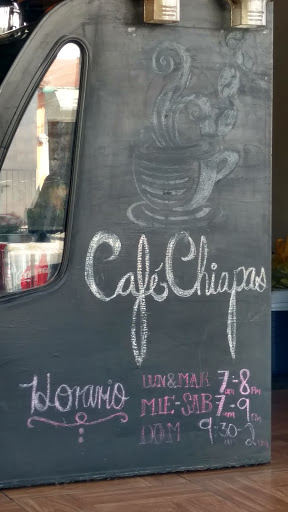 Café Chiapas
Horario
LUN&MAR 7am-8pm
MIE-SAB 7am-9pm
DOM 9:30am-2pm